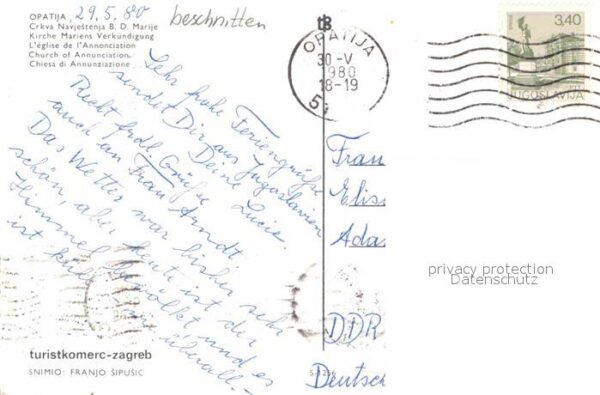 OPATIJA, 29.5.80 beschnitten
Crkva Navještenja B. D. Marije
Kirche Mariens Verkündigung
L'église de l'Annonciation
Church of Annunciation
Chiesa di Annunziazione
Sehr frohe Feriengrüße
sendet Dir aus Jugoslavien
Deine Lucie.
Recht frdl. Grüße
auch an Frau Arndt
Das Wetter war bisher sehr
schön, aber heute ist der
Himmel bewölkt und es
ist kühl überall.-
turistkomerc-zagreb
SNIMIO: FRANJO ŠIPUŠIC
OPATIJA
30-V
1980
18-19
5
3,40
JUGOSLAVIJA
Frau
Elis
Ada
DDR
Deutsch
privacy protection
Datenschutz